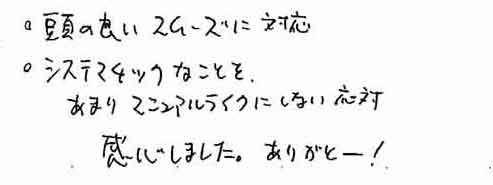 ○ 頭の良い スムーズに 対応
○ システマチックなことを、
あまり マニュアルライクにしない 応対
感心しました。ありがとー！